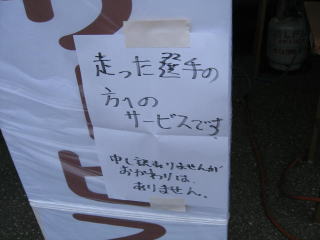 走った選手の
方への
サービスです
申し訳ありませんが
おかわりは
ありません。